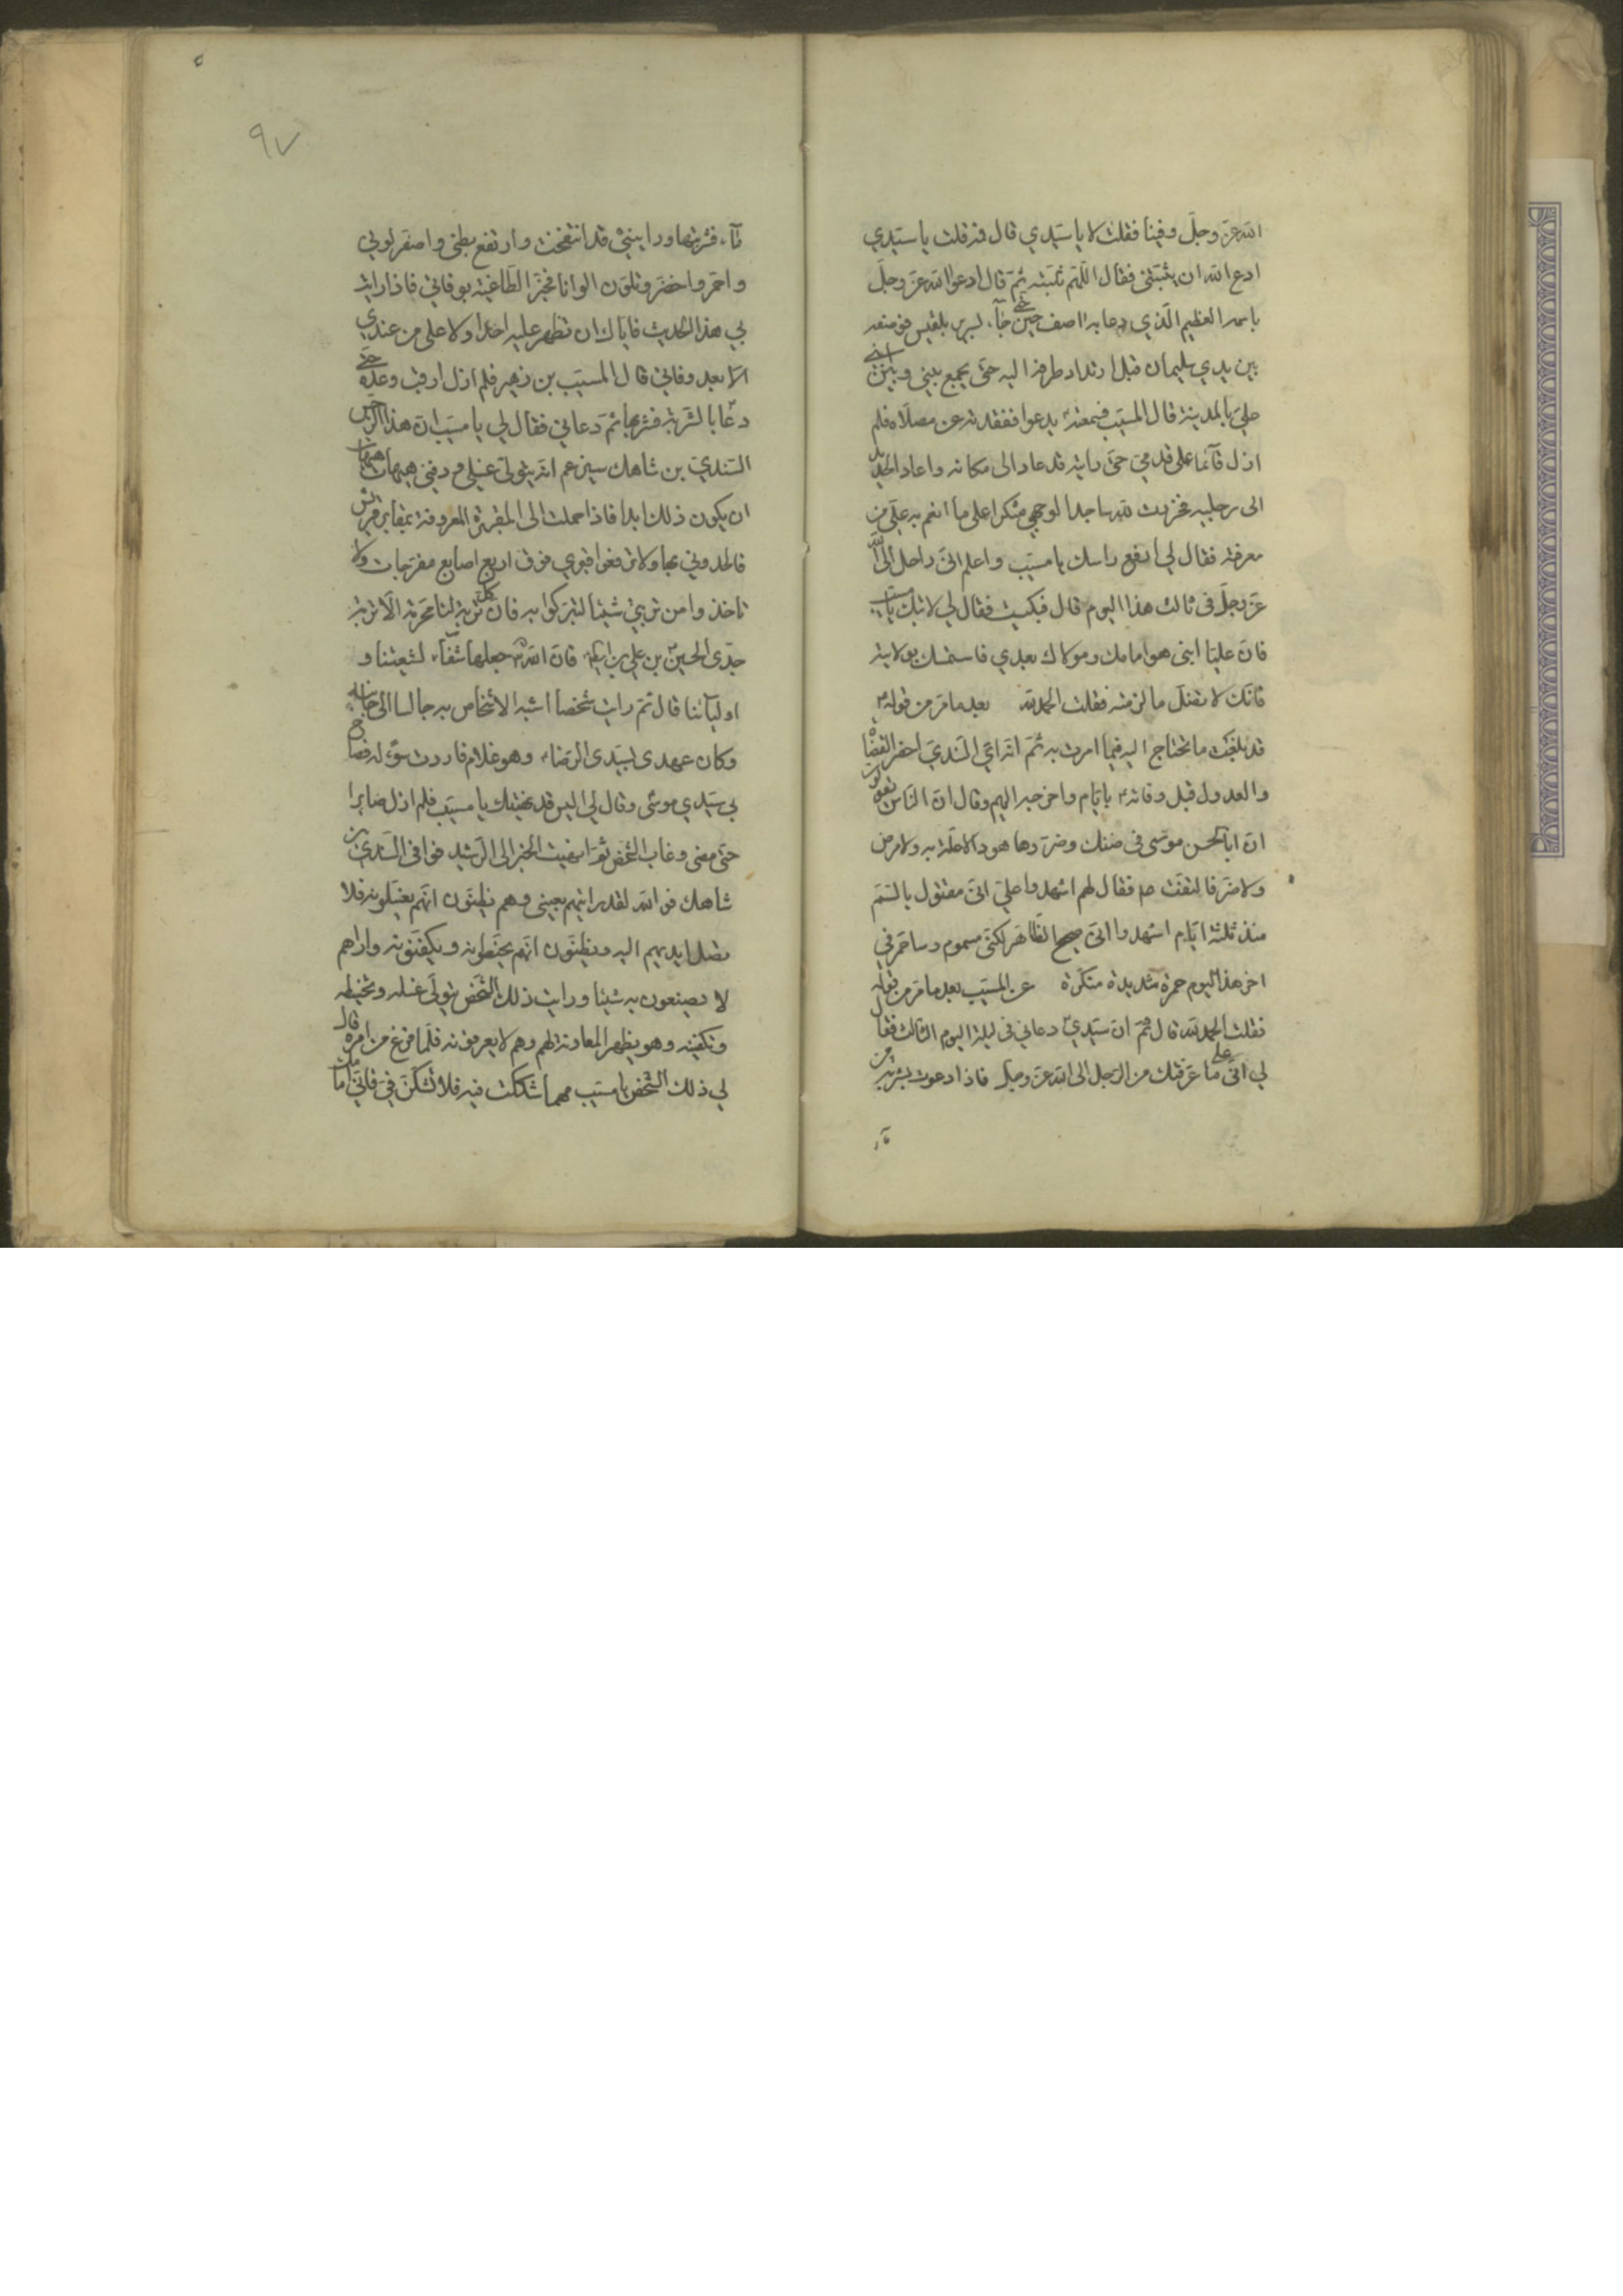 الله عزّ وجلّ وفينا فقلت لا يا سيّدي قال فمه قلت يا سيّدي
ادع الله ان يثبّتني فقال اللّهمّ ثبّته ثمّ قال ادعو الله عزّ وجلّ
باسمه العظيم الّذي دعا به اصف حين جآء بسرير بلقيس فوضعه
بين يدي سليمان قبل ارتداد طرفه اليه حتّى يجمع بيني وبين ابني
عليّ بالمدينة قال المسيّب فسمعته يدعوا ففقدته عن مصلّاه فلم
ازل قآئما على قدميّ حتّى رايته قد عاد الى مكانه واعاد الحديد
الى رجليه فخررت لله ساجدا لوجهي شكرا على ما انعم به عليّ من
معرفته فقال لي ارفع راسك يا مسيّب واعلم انّي راحل الى الله
عزّ وجلّ في ثالث هذا اليوم قال فبكيت فقال لي لا تبك يا مسيّب
فانّ عليّا ابني هو امامك ومولاك بعدي فاستمسك بولايته
فانّك لا تضلّ ما لزمته فقلت الحمد لله بعد ما مرّ من قوله
قد بلغتك ما تحتاج اليه فيما امرت به ثمّ انّه اعني السّنديّ احضر القضاة
والعدول قبل وفاته بايّام واخرجه اليهم وقال انّ النّاس يقولون
انّ ابا الحسن موسى في ضنك وضرّ وها هو ذا لا علّة به ولا مرض
ولا ضرّ فالتفت فقال لهم اشهدوا عليّ انّي مقتول بالسّمّ
منذ ثلثة ايّام اشهدوا انّي صحيح الظّاهر لكنّي مسموم وساحمرّ في
اخر هذا اليوم حمرة شديدة منكرة عن المسيّب بعد ما مرّ من قوله
فقلت الحمد لله قال ثمّ انّ سيّدي دعاني في ليلة اليوم الثالث فقال
لي انّي على ما عرّفتك من الرّحيل الى الله عزّ وجلّ فاذا دعوت بشربة من
مآء
٩٧
مآء فشربتها ورايتني قد انتفخت وارتفع بطني واصفرّ لوني
واحمرّ واخضرّ وتلوّن الوانا فخبّر الطّاغية بوفاتي فاذا رايت
بي هذا الحديث فايّاك ان تظهر عليه احدا ولا على من عندي
الّا بعد وفاتي قال المسيّب بن زهير فلم ازل ارقب وعده حتّى
دعا بالشّربة فشربها ثمّ دعاني فقال لي يا مسيّب انّ هذا الرّجس
السّنديّ بن شاهك سيزعم انّه يتولّى غسلي ودفني هيهات هيهات
ان يكون ذلك ابدا فاذا حملت الى المقبرة المعروفة بمقابر قريش
فالحدوني بها ولا ترفعوا قبري فوق اربع اصابع مفرّجات ولا
تاخذوا من تربتي شيئا لتتبرّكوا به فان كل تربة لنا محرّمة الّا تربة
جدّي الحسين بن علي فانّ الله جعلها شفآء لشيعتنا و
اوليآئنا قال ثمّ رايت شخصا اشبه الاشخاص به جالسا الى جانبه
وكان عهدي بسيّدي الرّضا وهو غلام فاردت سؤاله فصاح
بي سيّدي موسى وقال لي اليس قد نهيتك يا مسيّب فلم ازل صابرا
حتّى مضى وغاب الشّخص ثمّ انهيت الخبر الى الرّشيد فوافى السّنديّ بن
شاهك فو الله لقد رايتهم بعيني وهم يظنّون انّهم يغسّلونه فلا
تصل ايديهم اليه ويظنّون انّهم يحنّطونه ويكفّنونه واراهم
لا يصنعون به شيئا ورايت ذلك الشّخص يتولّى غسله وتحنيطه
وتكفينه وهو يظهر المعاونة لهم وهم لا يعرفونه فلمّا فرغ من امره قال
لي ذلك الشّخص يا مسيّب مهما شككت فيه فلا تشكّنّ فيّ فانّي امامك